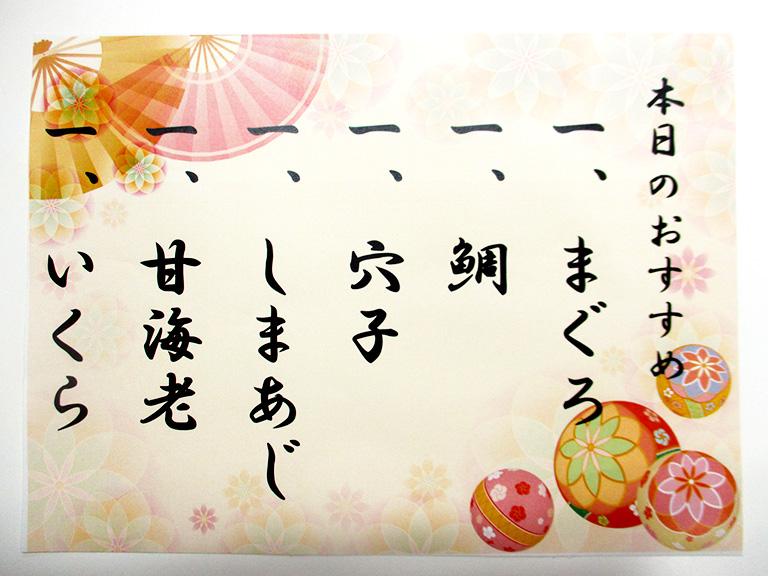 本日のおすすめ
一、まぐろ
一、鯛
一、穴子
一、しまあじ
一、甘海老
一、いくら